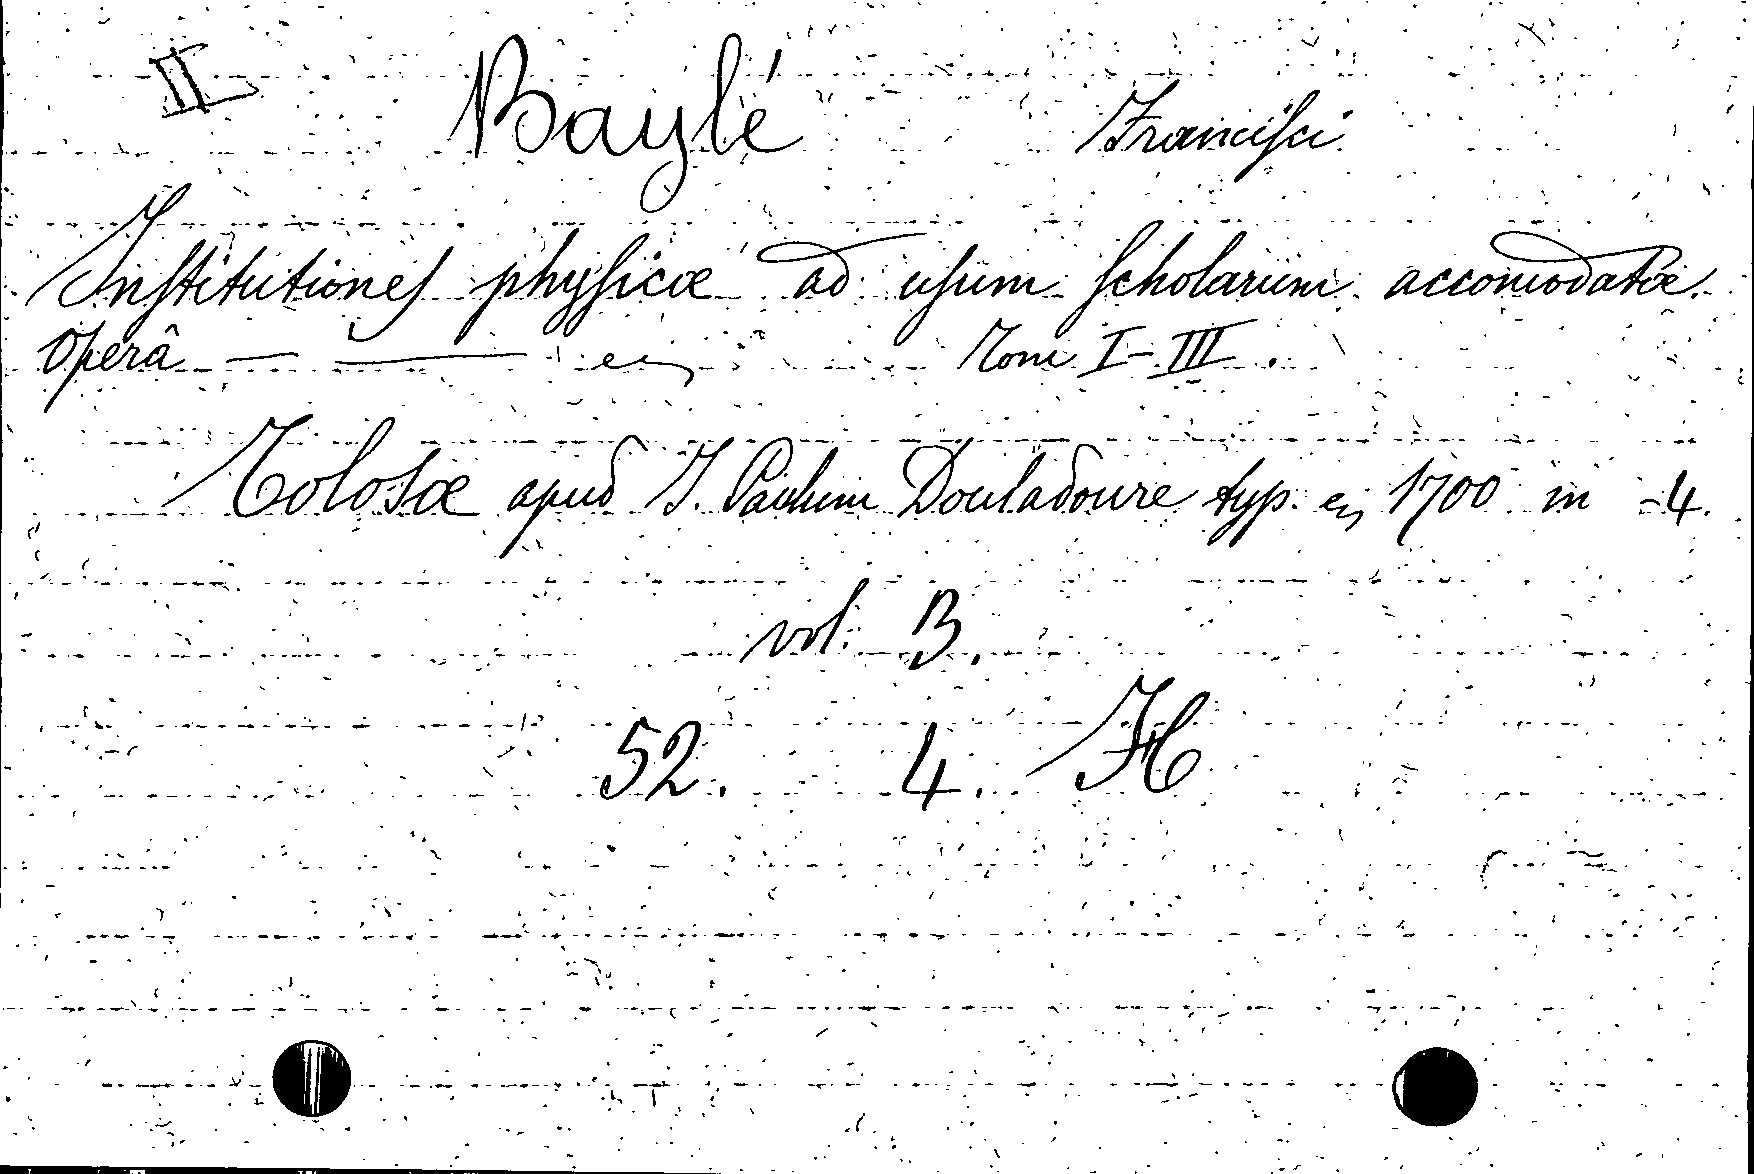 II Baylé Francisci
Institutiones physicæ ad usum scholarum accomodatæ.
Operâ — — Tom I–III.
Tolosæ apud J. Paulum Douladoure typ. 1700 in -4.
vol. 3.
52. 4. H